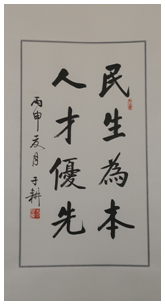 民生為本
人才優先
丙申夏月于耕